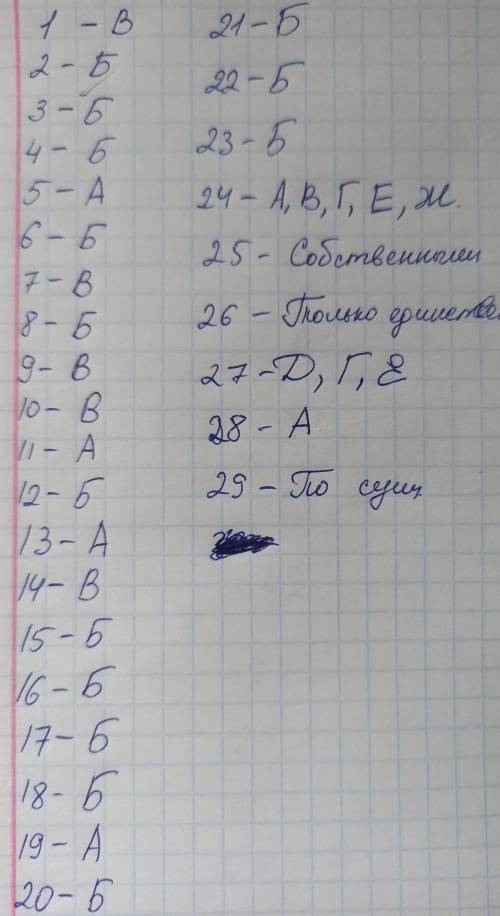 1 - В
2 - Б
3 - Б
4 - Б
5 - А
6 - Б
7 - В
8 - Б
9 - В
10 - В
11 - А
12 - Б
13 - А
14 - В
15 - Б
16 - Б
17 - Б
18 - Б
19 - А
20 - Б
21 - Б
22 - Б
23 - Б
24 - А, В, Г, Е, Ж.
25 - Собственными
26 - Только единствен
27 - Д, Г, Е
28 - А
29 - По сущ